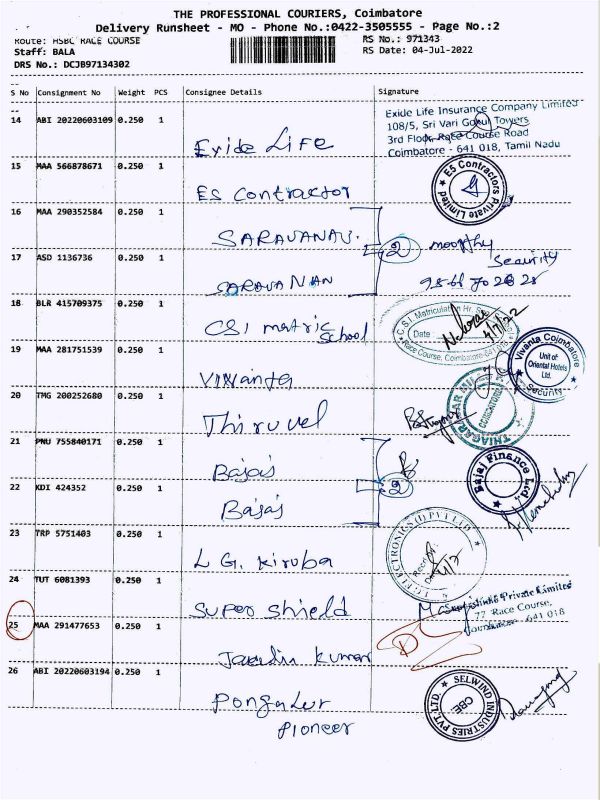 THE PROFESSIONAL COURIERS, Coimbatore
Delivery Runsheet - MO - Phone No.:0422-3505555 - Page No.:2
Route: HSBC RACE COURSE
RS No.: 971343
Staff: BALA
RS Date: 04-Jul-2022
DRS No.: DCJB97134302
S No Consignment No Weight PCS Consignee Details Signature
14 ABI 20220603109 0.250 1 Exide Life
Exide Life Insurance Company Limited
108/5, Sri Vari Gokul Towers
3rd Floor, Race Course Road
Coimbatore - 641 018, Tamil Nadu
15 MAA 566878671 0.250 1 ES Contractor
ES Contractors Private Limited
16 MAA 290352584 0.250 1 SARAVANAN.
2 moorthy
Security
17 ASD 1136736 0.250 1 SARAVANAN
18 BLR 415709375 0.250 1 CSI matric School
C.S.I. Matriculation Hr.
Date
Race Course, Coimbatore-641 018
4/7/22
19 MAA 281751539 0.250 1
Vivanta Coimbatore
Unit of
Oriental Hotels
Ltd.
Security
20 TMG 200252680 0.250 1 Thiruvel
COIMBATORE
21 PNU 755840171 0.250 1 Bajaj
2
Bajaj Finance Ltd.
22 KDI 424352 0.250 1 Bajaj
23 TRP 5751403 0.250 1 L G. Kiruba
ELECTRONICS (I) PVT LTD
4/7
24 TUT 6081393 0.250 1 Super Shield
Private Limited
77 Race Course,
Coimbatore - 641 018
25 MAA 291477653 0.250 1 Kumar
26 ABI 20220603194 0.250 1
Pioneer
SELWIND INDUSTRIES PVT. LTD.
CBE